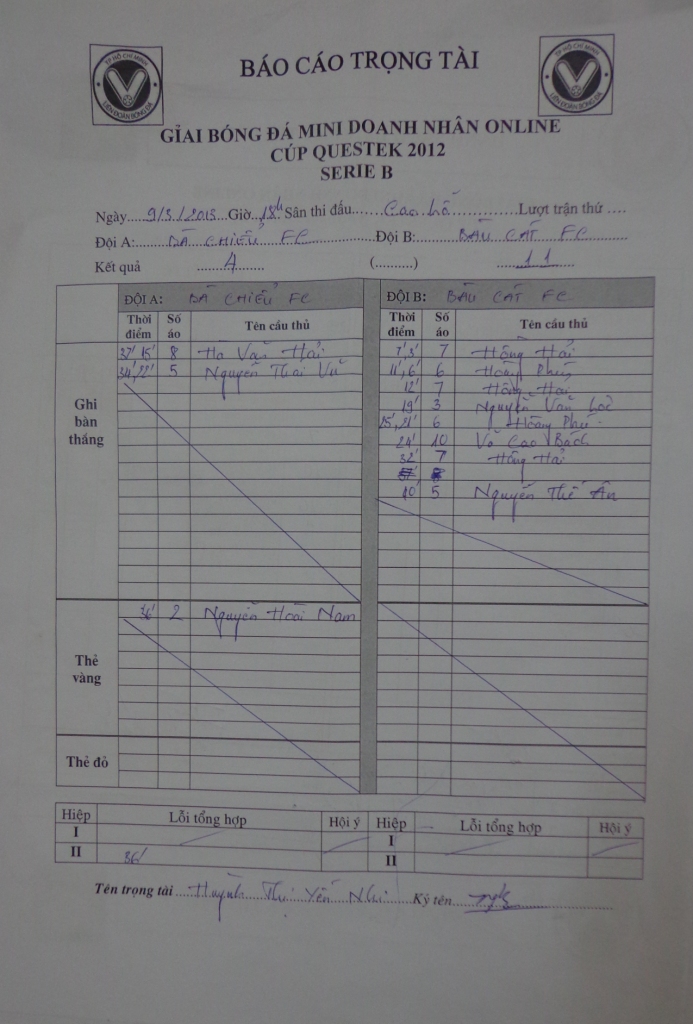 TP HỒ CHÍ MINH
LIÊN ĐOÀN BÓNG ĐÁ
BÁO CÁO TRỌNG TÀI
TP HỒ CHÍ MINH
LIÊN ĐOÀN BÓNG ĐÁ
GIẢI BÓNG ĐÁ MINI DOANH NHÂN ONLINE
CÚP QUESTEK 2012
SERIE B
Ngày....9/3/2013.Giờ.18h Sân thi đấu......Cao Lỗ...............Lượt trận thứ ....
Đội A:......BÀ CHIỂU FC..............Đội B:..........BÀU CÁT FC.........
Kết quả .......4....... (..........) .....11.......
ĐỘI A: BÀ CHIỂU FC ĐỘI B: BÀU CÁT FC
Thời điểm Số áo Tên cầu thủ Thời điểm Số áo Tên cầu thủ
Ghi bàn thắng
37' 15' 8 Hà Văn Hải 7' 3' 7 Hồng Hải
34', 22' 5 Nguyễn Thái Vũ 11', 6' 6 Hoàng Phú
12' 7 Hồng Hải
19' 3 Nguyễn Văn Lộc
15', 21' 6 Hoàng Phú
24' 10 Võ Cao Bách
32' 7 Hồng Hải
40' 5 Nguyễn Thế Ân
Thẻ vàng
36' 2 Nguyễn Hoài Nam
Thẻ đỏ
Hiệp Lỗi tổng hợp Hội ý Hiệp Lỗi tổng hợp Hội ý
I I
II 36' II
Tên trọng tài ....Huỳnh Thị Yến Nhi......Ký tên